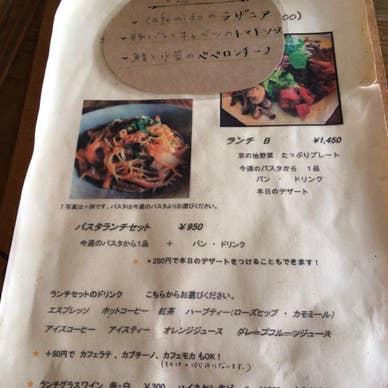 cafe
ラザニア
00)
トマトソース
ペペロンチーノ
ランチ B ¥1,450
京の地野菜 たっぷりプレート
今週のパスタから 1品
パン ・ ドリンク
本日のデザート
↑写真は一例です。パスタは今週のパスタよりお選びください。
パスタランチセット ¥950
今週のパスタから1品 + パン・ドリンク
★ +250円で本日のデザートをつけることもできます!
ランチセットのドリンク こちらからお選びください。
エスプレッソ ホットコーヒー 紅茶 ハーブティー(ローズヒップ・カモミール)
アイスコーヒー アイスティー オレンジジュース グレープフルーツジュース
★ +50円で カフェラテ、カプチーノ、カフェモカ もOK!
★ ランチグラスワイン 赤・白 ¥300